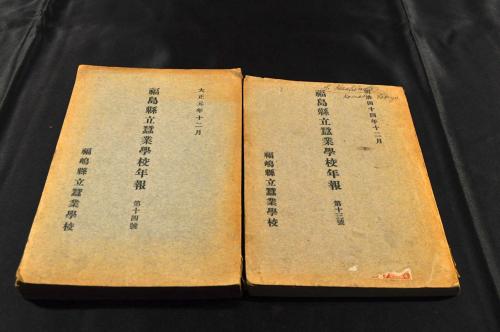 大正元年十二月
福島縣立蠶業學校年報 第十四號
福嶋縣立蠶業學校
明治四十四年十二月
福島縣立蠶業學校年報 第十三號
福嶋縣立蠶業學校